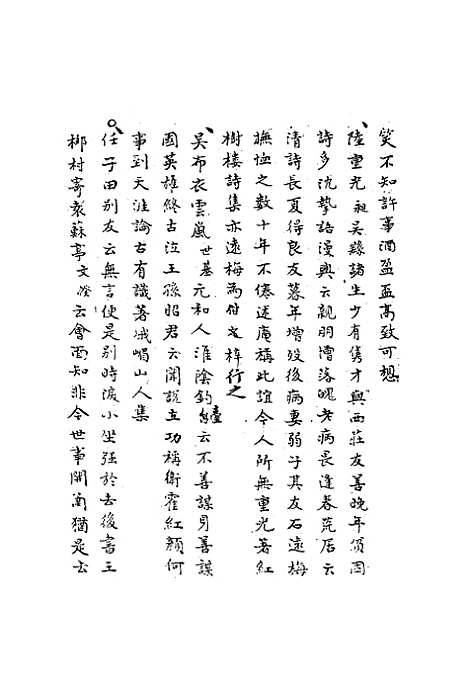 笑不知許事酒盈盃高致可想
陸重光 吳縣諸生少有雋才與西莊友善晚年須困
詩多沈摯語漫興云親朋懵落魄老病長逢春荒居云
清詩長夏得良友暮年增歿後病妻弱子其友石遠梅
撫恤之數十年不倦述庵稱此誼今人所無重光著紅
樹樓詩集亦遠梅為付之梓行之
吳布衣雲嵐世基元和人淮陰釣臺云不善謀身善謀
國英雄終古泣王孫昭君云聞說立功稱衛霍紅顏何
事到天涯論古有識著峨嵋山人集
任子田別友云無言便是別時淚小坐強於去後書王
柳村寄袁蘇亭文 云會面知非今世事開函猶是去